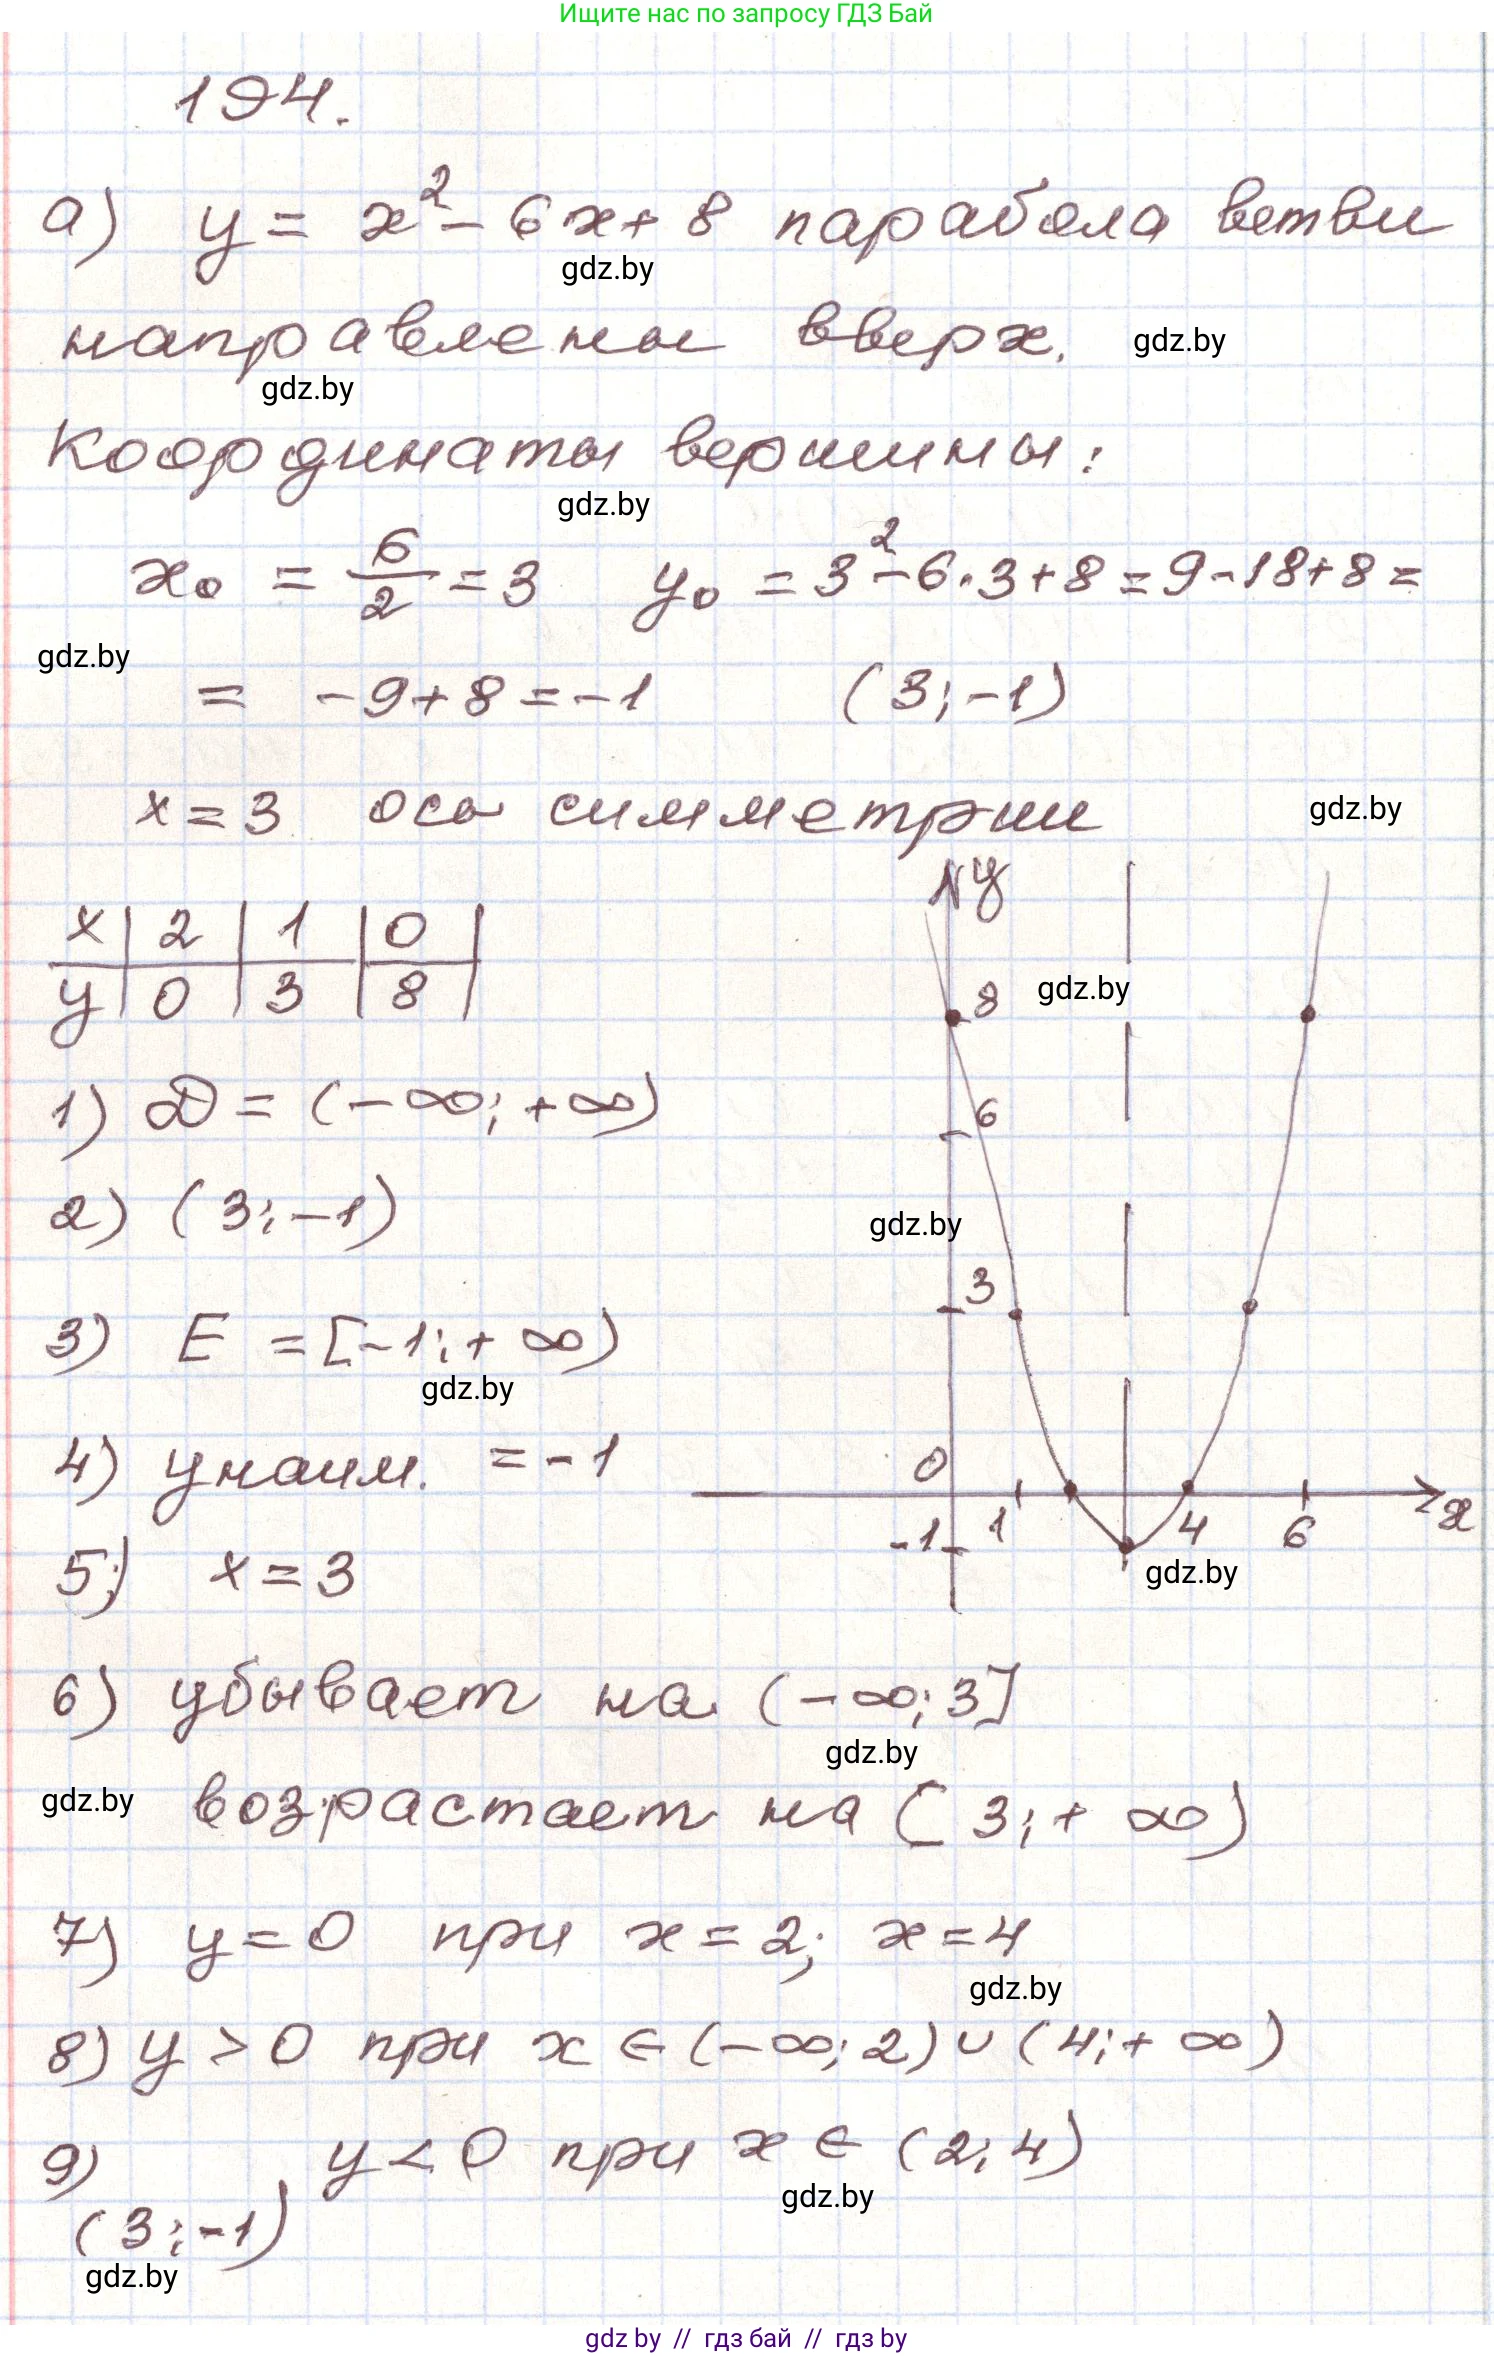 Ищите нас по запросу ГДЗ Бай
194.
а) y = x² - 6x + 8 парабола ветви
gdz.by
направлены вверх.
gdz.by
gdz.by
Координаты вершины:
gdz.by
x₀ = 6/2 = 3 y₀ = 3² - 6·3 + 8 = 9 - 18 + 8 =
gdz.by
= -9 + 8 = -1 (3; -1)
x = 3 ось симметрии
gdz.by
x | 2 | 1 | 0
y | 0 | 3 | 8
y
8
gdz.by
6
gdz.by
3
0
-1
1
4
6
x
gdz.by
1) D = (-∞; +∞)
2) (3; -1)
3) E = [-1; +∞)
gdz.by
4) y наим. = -1
5) x = 3
6) убывает на (-∞; 3]
gdz.by
gdz.by
возрастает на [3; +∞)
7) y = 0 при x = 2; x = 4
gdz.by
8) y > 0 при x ∈ (-∞; 2) ∪ (4; +∞)
y < 0 при x ∈ (2; 4)
gdz.by
9)
(3; -1)
gdz.by
gdz by // гдз бай // гдз by